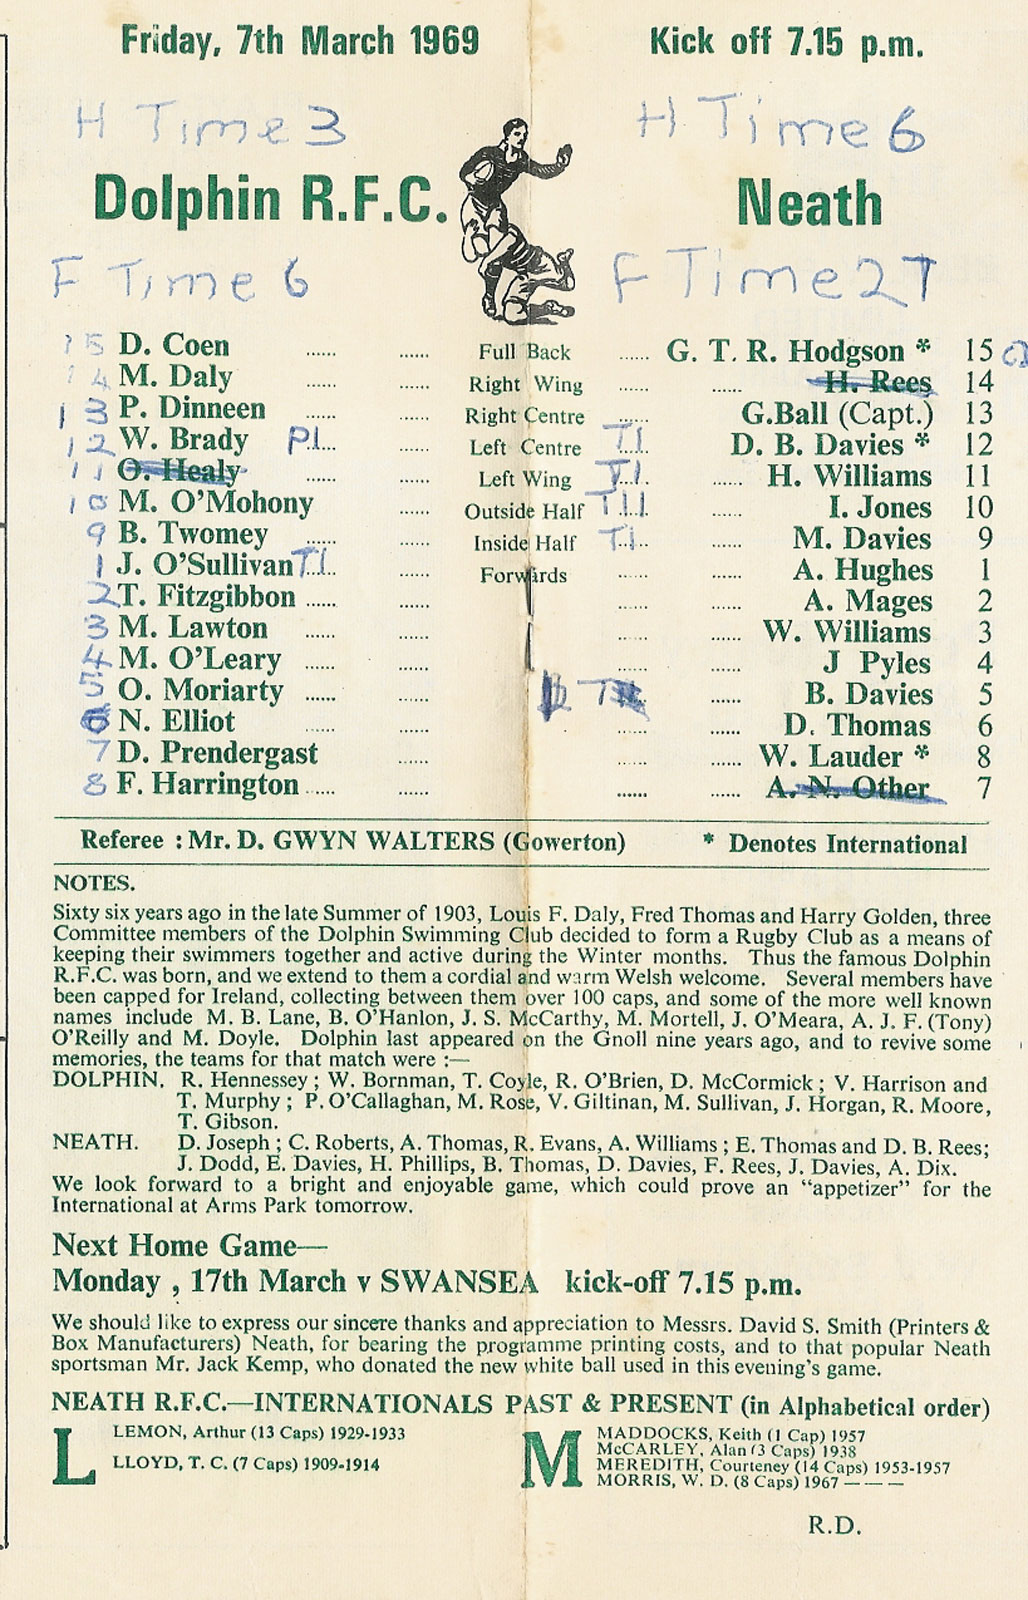 Friday, 7th March 1969 Kick off 7.15 p.m.
H Time 3 H Time 6
Dolphin R.F.C. Neath
F Time 6 F Time 27
15 D. Coen ...... ...... Full Back ...... G. T. R. Hodgson * 15
14 M. Daly ...... ...... Right Wing ...... ...... H. Rees 14
13 P. Dinneen ...... ...... Right Centre ...... G.Ball (Capt.) 13
12 W. Brady P.I. ...... Left Centre T.I. D. B. Davies * 12
11 O. Healy ...... ...... Left Wing T.I. ...... H. Williams 11
10 M. O'Mohony ...... Outside Half T.I.I. ...... I. Jones 10
9 B. Twomey ...... ...... Inside Half T.I. ...... M. Davies 9
1 J. O'Sullivan T.I. ...... Forwards ...... ...... A. Hughes 1
2 T. Fitzgibbon ...... ...... ...... ...... A. Mages 2
3 M. Lawton ...... ...... ...... ...... W. Williams 3
4 M. O'Leary ...... ...... ...... ...... J Pyles 4
5 O. Moriarty ...... ...... ...... B. Davies 5
6 N. Elliot ...... ...... ...... ...... D. Thomas 6
7 D. Prendergast ...... ...... ...... W. Lauder * 8
8 F. Harrington ...... ...... ...... ...... A. N. Other 7
Referee : Mr. D. GWYN WALTERS (Gowerton) * Denotes International
NOTES.
Sixty six years ago in the late Summer of 1903, Louis F. Daly, Fred Thomas and Harry Golden, three
Committee members of the Dolphin Swimming Club decided to form a Rugby Club as a means of
keeping their swimmers together and active during the Winter months. Thus the famous Dolphin
R.F.C. was born, and we extend to them a cordial and warm Welsh welcome. Several members have
been capped for Ireland, collecting between them over 100 caps, and some of the more well known
names include M. B. Lane, B. O'Hanlon, J. S. McCarthy, M. Mortell, J. O'Meara, A. J. F. (Tony)
O'Reilly and M. Doyle. Dolphin last appeared on the Gnoll nine years ago, and to revive some
memories, the teams for that match were :—
DOLPHIN. R. Hennessey ; W. Bornman, T. Coyle, R. O'Brien, D. McCormick ; V. Harrison and
T. Murphy ; P. O'Callaghan, M. Rose, V. Giltinan, M. Sullivan, J. Horgan, R. Moore,
T. Gibson.
NEATH. D. Joseph ; C. Roberts, A. Thomas, R. Evans, A. Williams ; E. Thomas and D. B. Rees;
J. Dodd, E. Davies, H. Phillips, B. Thomas, D. Davies, F. Rees, J. Davies, A. Dix.
We look forward to a bright and enjoyable game, which could prove an "appetizer" for the
International at Arms Park tomorrow.
Next Home Game—
Monday , 17th March v SWANSEA kick-off 7.15 p.m.
We should like to express our sincere thanks and appreciation to Messrs. David S. Smith (Printers &
Box Manufacturers) Neath, for bearing the programme printing costs, and to that popular Neath
sportsman Mr. Jack Kemp, who donated the new white ball used in this evening's game.
NEATH R.F.C.—INTERNATIONALS PAST & PRESENT (in Alphabetical order)
L LEMON, Arthur (13 Caps) 1929-1933
LLOYD, T. C. (7 Caps) 1909-1914
M MADDOCKS, Keith (1 Cap) 1957
McCARLEY, Alan (3 Caps) 1938
MEREDITH, Courteney (14 Caps) 1953-1957
MORRIS, W. D. (8 Caps) 1967 — — —
R.D.